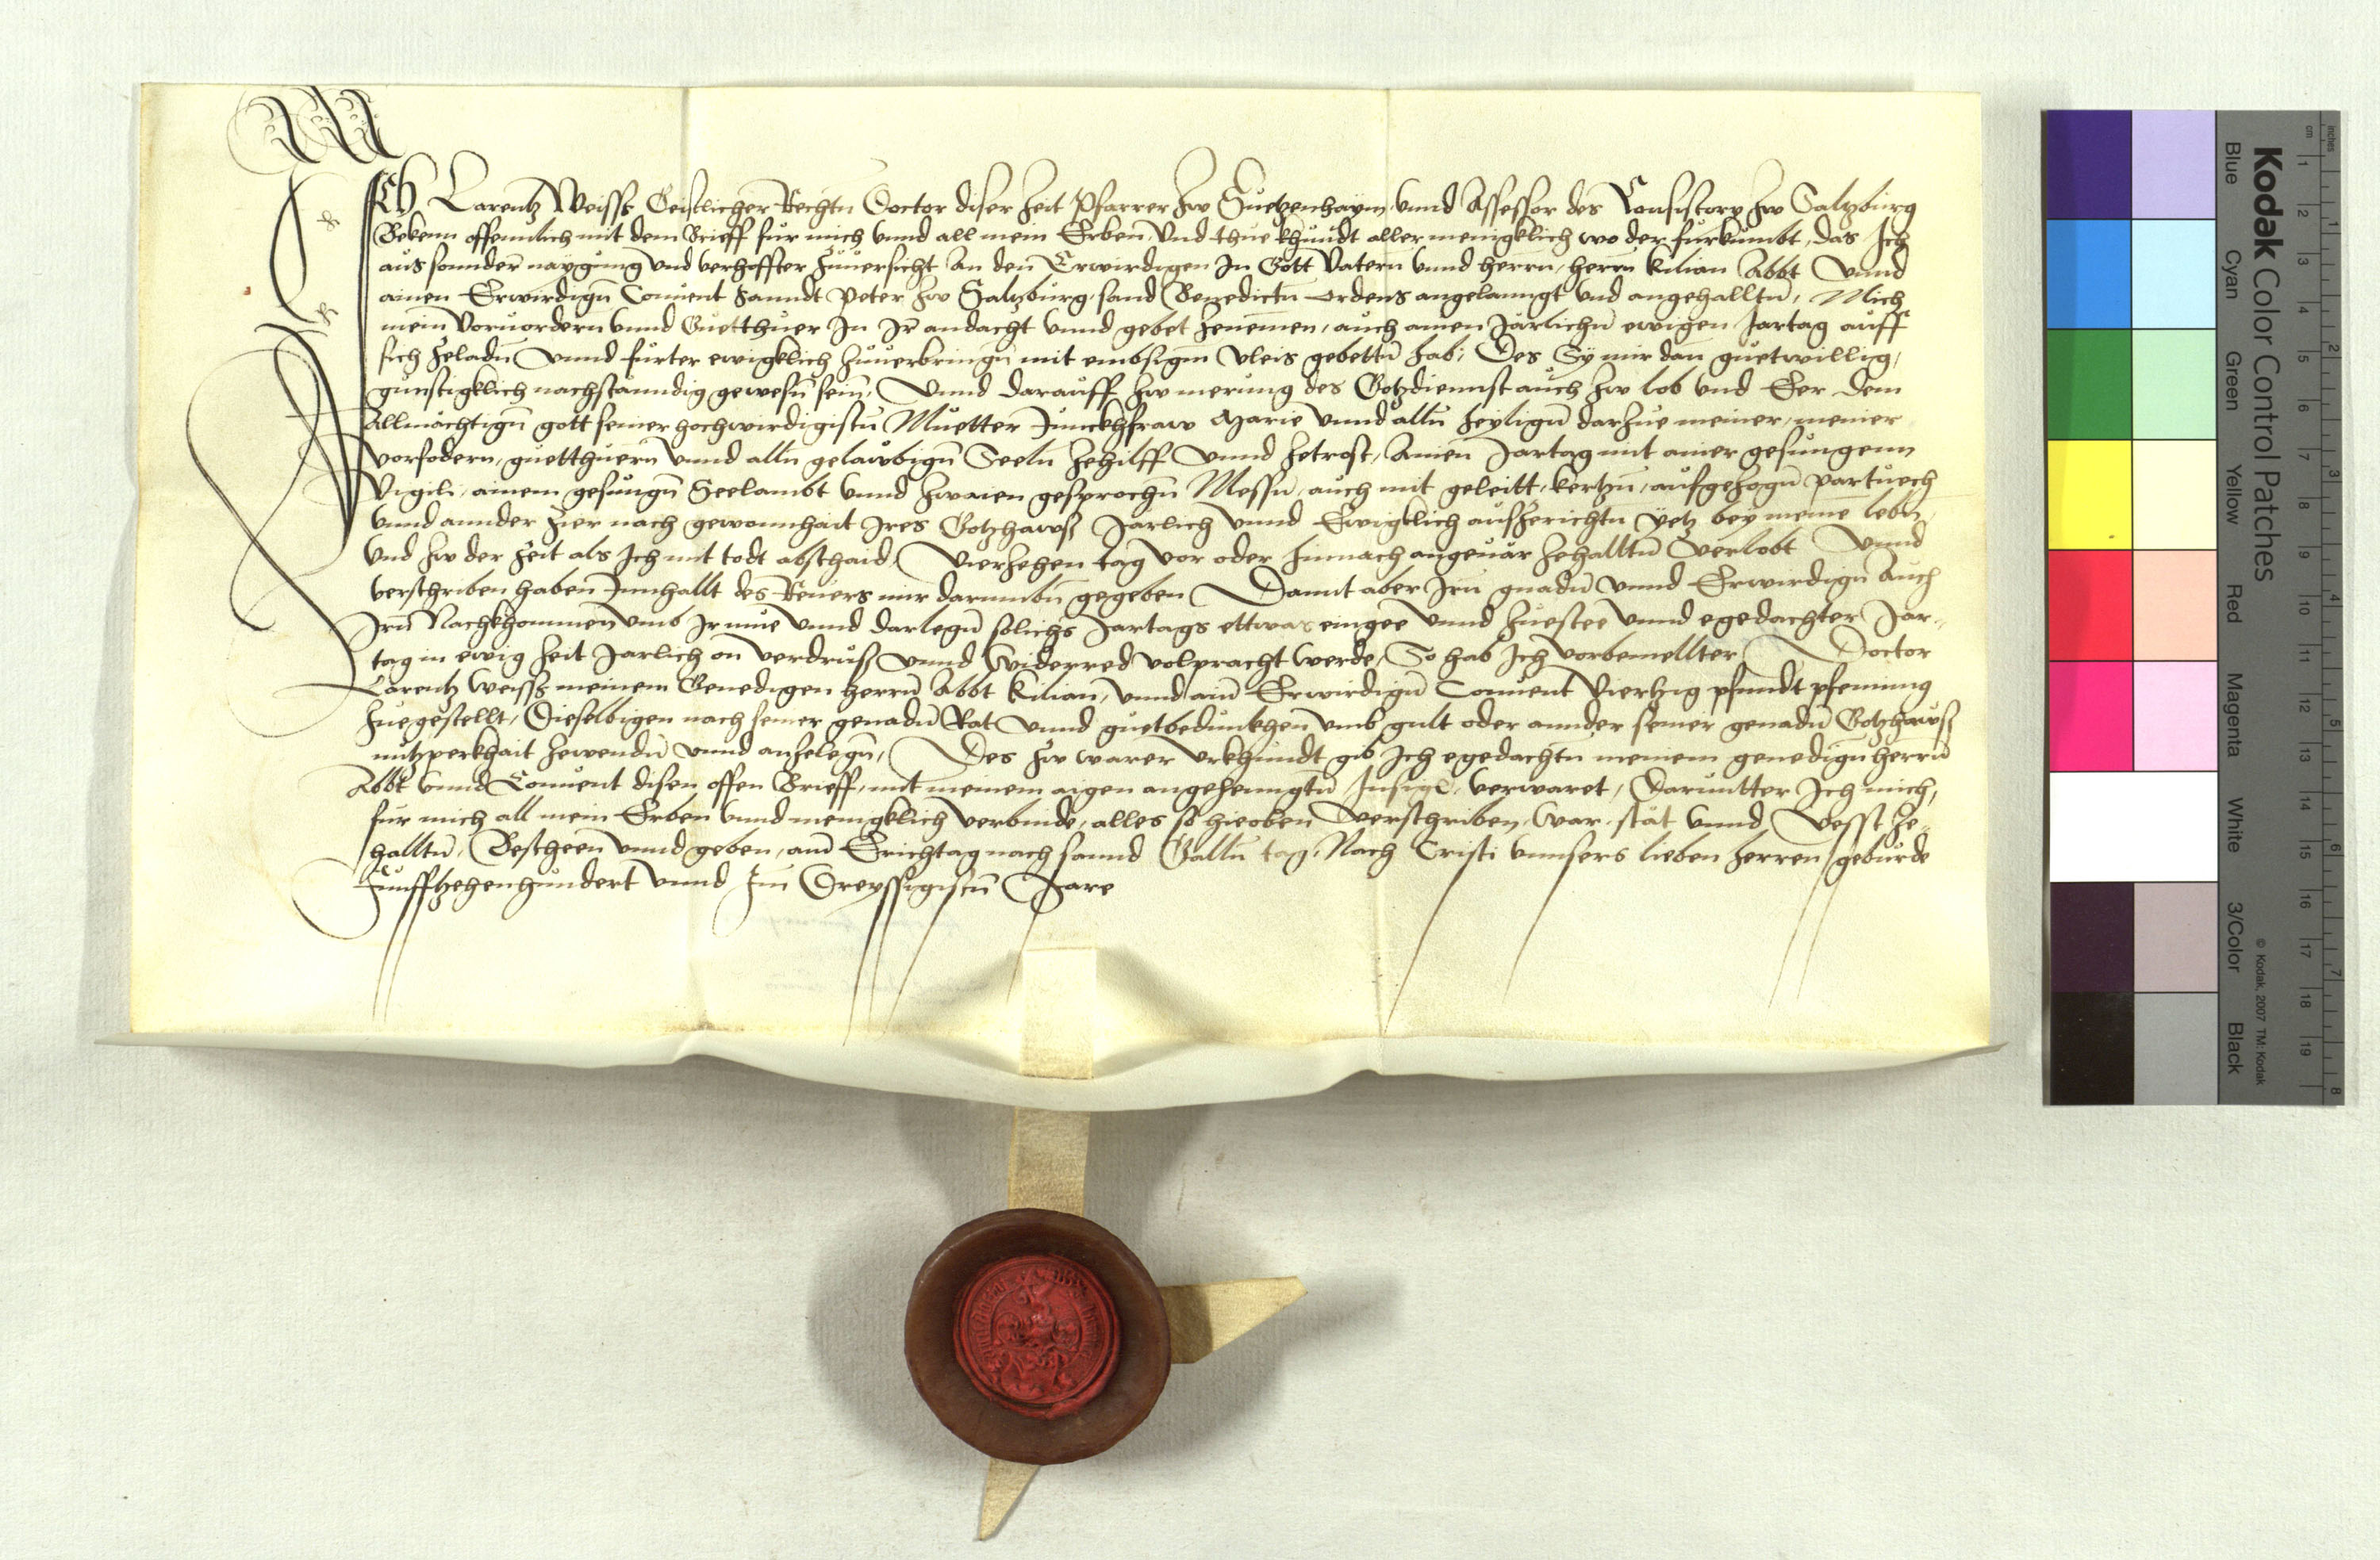 ICh Larentz Weiss Geistlicher Rechtn Doctor diser Zeit Pfarrer zw Guetzenhaym vnnd Assessor des Consistory zw Saltzburg
Bekenn offennlich mit dem Brieff fur mich vnnd all mein Erben Vnd thue khundt aller menigklich wo der furkumbt, das Ich
aus sonnder naygung vnd verhoffter Zuuersicht An den Erwirdigen In Gott Vatern vnnd herrn, herrn Kilian Abbt Vnnd
ainen Erwirdign Conuent Sanndt Peter zw Saltzburg, sand Benedictn ordens angelanngt vnd angehalltn, Mich
mein Voruordern vnnd Guetthuer In Ir andacht vnnd gebet zenemen, auch ainen Järlichn ewigen Jartag auff
sich zeladn Vnnd furter ewigklich zuuerbringn mit embsigen vleis gebettn hab, Des Sy mir dan guetwillig,
gunstigklich nachstanndig gewesn sein, Vnnd darauff zw merung des Gotzdiennst auch zw lob vnd Eer dem
Allmächtign gott seiner hochwirdigistn Muetter Junckhfraw Marie vnnd alln heylign darzue meiner, meiner
vorfodern, guetthuern vnnd alln gelawbign Seeln zehilff Vnnd zetrost, Ainen Jartag mit ainer gesungenn
Vigili, ainem gesungn Seelambt vnnd zwaien gesprochn Messn, auch mit geleitt, kertzn, aufgezogn partuech
vnnd annder Zier nach gewonnhait Ires Gotzhawss Jarlich vnnd Ewigklich ausszerichtn yetz bey meine lebn
Vnd zw der Zeit als Ich mit todt abschaid, Vierzehen tag vor oder hinnach angeuär zehalltn Verlobt Vnnd
verschriben haben Innhallt des Reuers mir darumbn gegeben Damit aber Irn gnadn vnnd Erwirdign Auch
Irn Nachkhommen vmb Ir mue Vnnd darlegn solichs Jartags ettwas eingee vnnd zuestee vnnd egedachter Jar-
tag in ewig Zeit Jarlich on verdruss vnnd Widerred volpracht werde, So hab Ich vorbemellter Doctor
Larentz Weiss meinem Genedigen herrn Abbt Kilian, vnnd ain Erwirdign Conuent Viertzig pfundt pfening
zuegestellt, Dieselbigen nach seiner genadn Rat vnnd guetbedunkhen vmb gult oder annder seiner genadn Gotzhawss
nutzperkhait zewendn vnnd anzelegn, Des zw warer Vrkhundt gib Ich egedachtn meinem genedign herrn
Abbt vnnd Conuent disen offen Brieff, mit meinem aigen angehenngtn Insigl, verwaret, Daruntter Ich mich,
fur mich all mein Erben vnnd menigklich verbinde, alles so hieoben verschriben, War, stät vnnd Vesst ze-
halltn, Bescheen vnnd geben, am Erichtag nach sannd Galln tag, Nach Cristi vnnsers lieben herren geburde
Funfftzehenhundert vnnd Im Dreyssigistn Jare
Kodak Color Control Patches
Blue Cyan Green Yellow Red Magenta White 3/Color Black
© Kodak, 2007 TM: Kodak
cm 1 2 3 4 5 6 7 8 9 10 11 12 13 14 15 16 17 18 19
inches 1 2 3 4 5 6 7 8